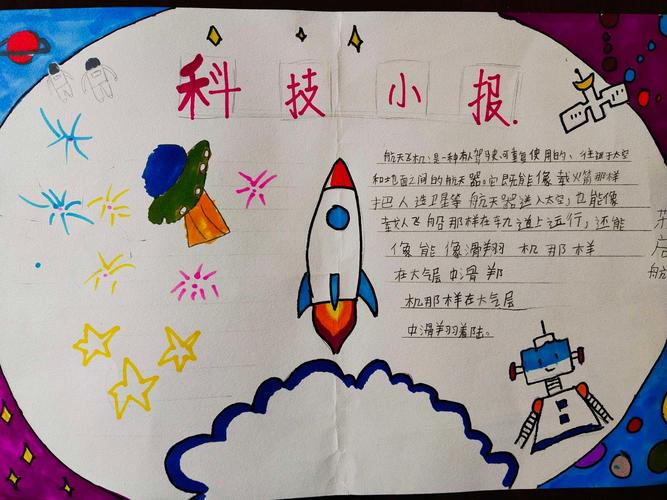 科技小报.
航天飞机:是一种有人驾驶可重复使用的、往返于太空
和地面之间的航天器。它既能像载火箭那样
把人造卫星等航天器送入太空,也能像
载人飞船那样在轨道上运行,还能
像能像滑翔机那样
在大气层中滑翔
机那样在大气层
中滑翔着陆。